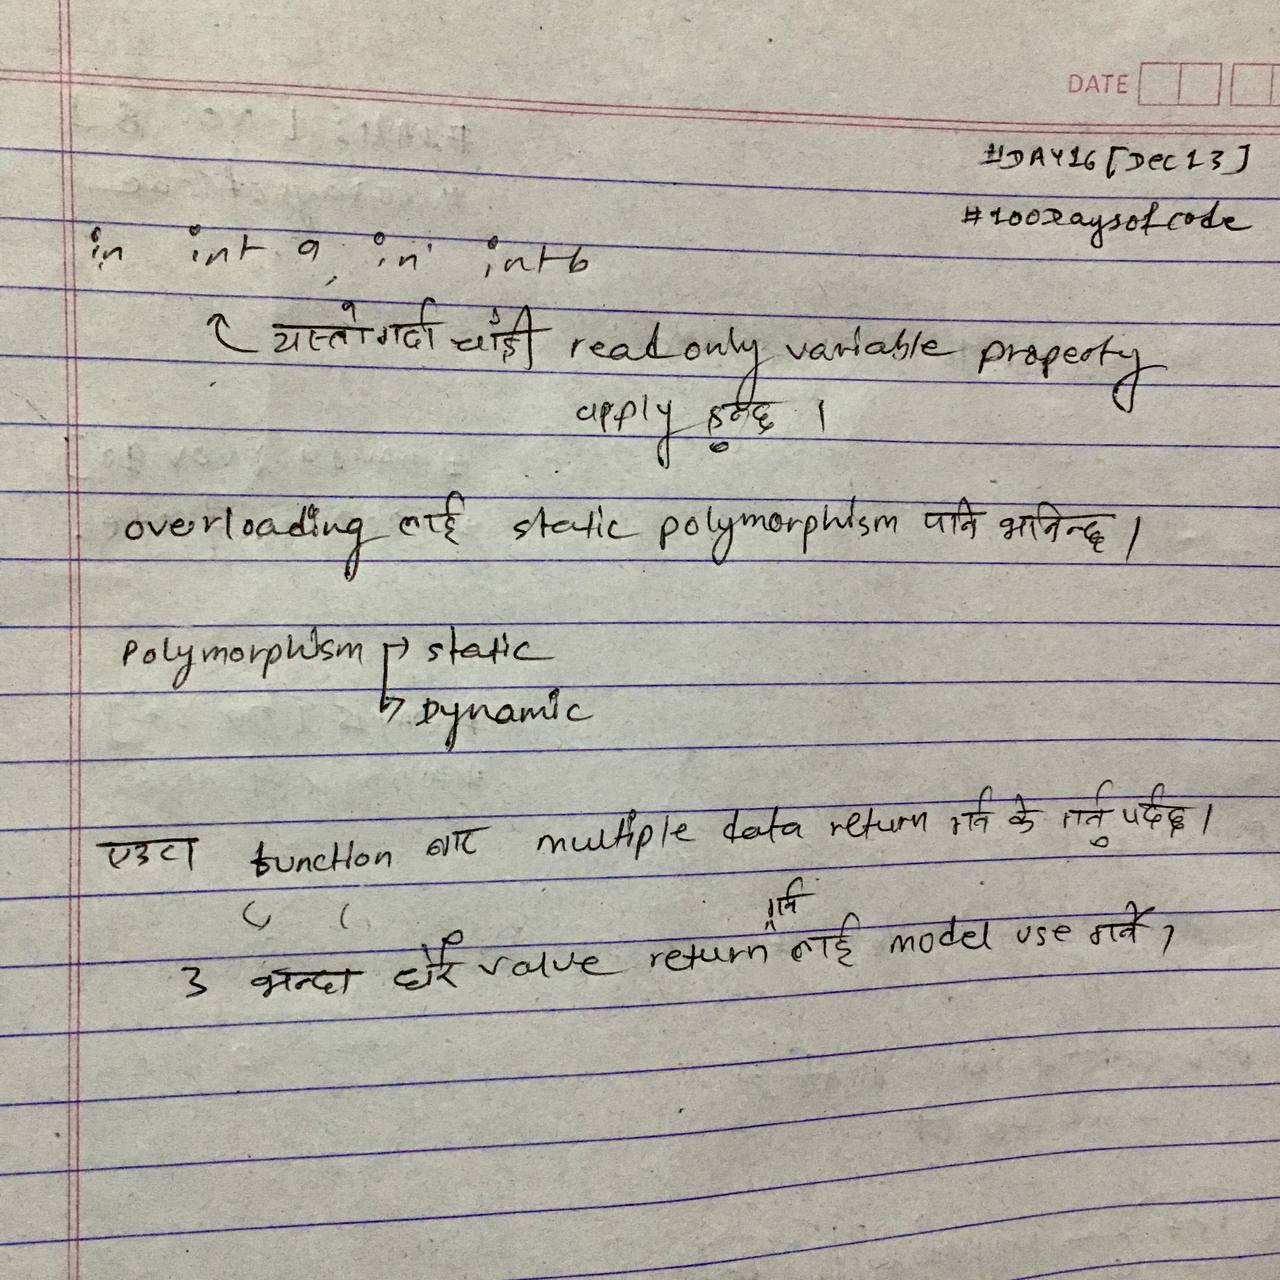 DATE
#DAY16 [Dec 13]
#100Daysofcode
in int a, in int b
यस्तो गर्दा चाँही read only variable property
apply हुन्छ ।
overloading लाई static polymorphism पनि भनिन्छ ।
Polymorphism → static
→ Dynamic
एउटा function बाट multiple data return गर्न के गर्नु पर्दछ ।
3 भन्दा धेरै value return गर्न लाई model use गर्ने,